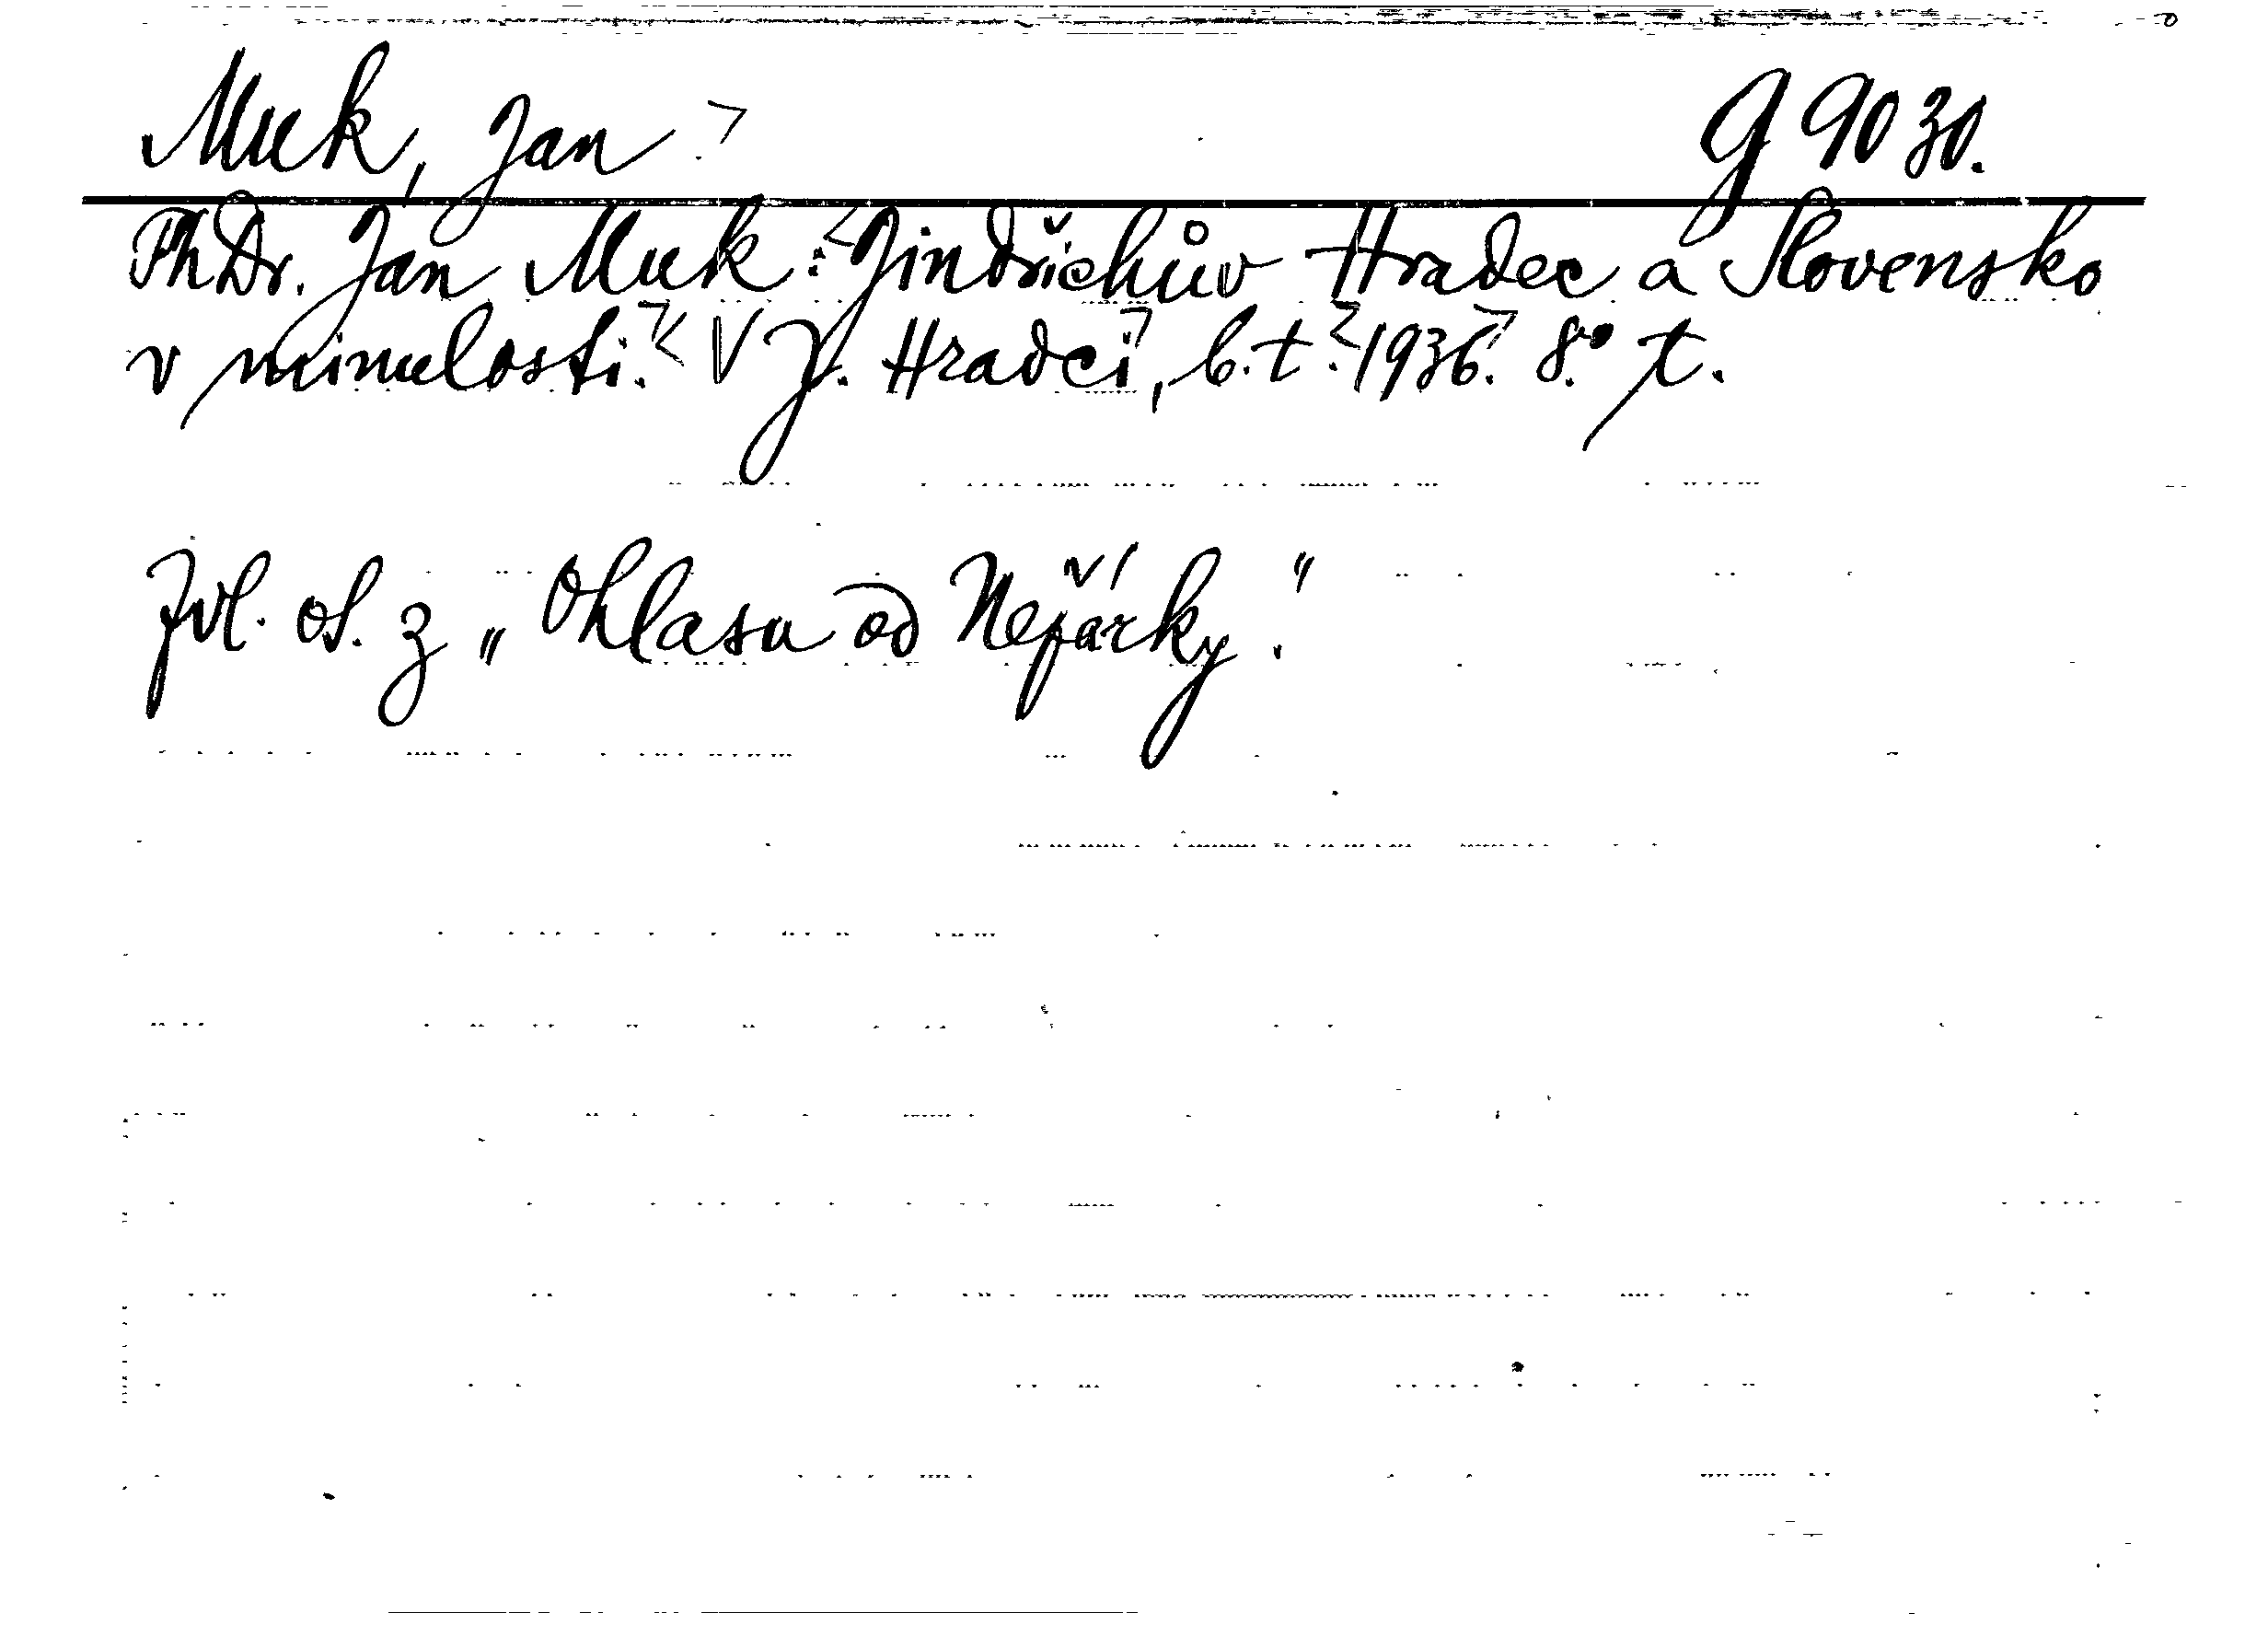 Muk, Jan G 9030.
PhDr. Jan Muk: Jindřichův Hradec a Slovensko
v minulosti. V J. Hradci, b. t. 1936. 8.° t.
Zvl. ot. z „Ohlasu od Nežárky."